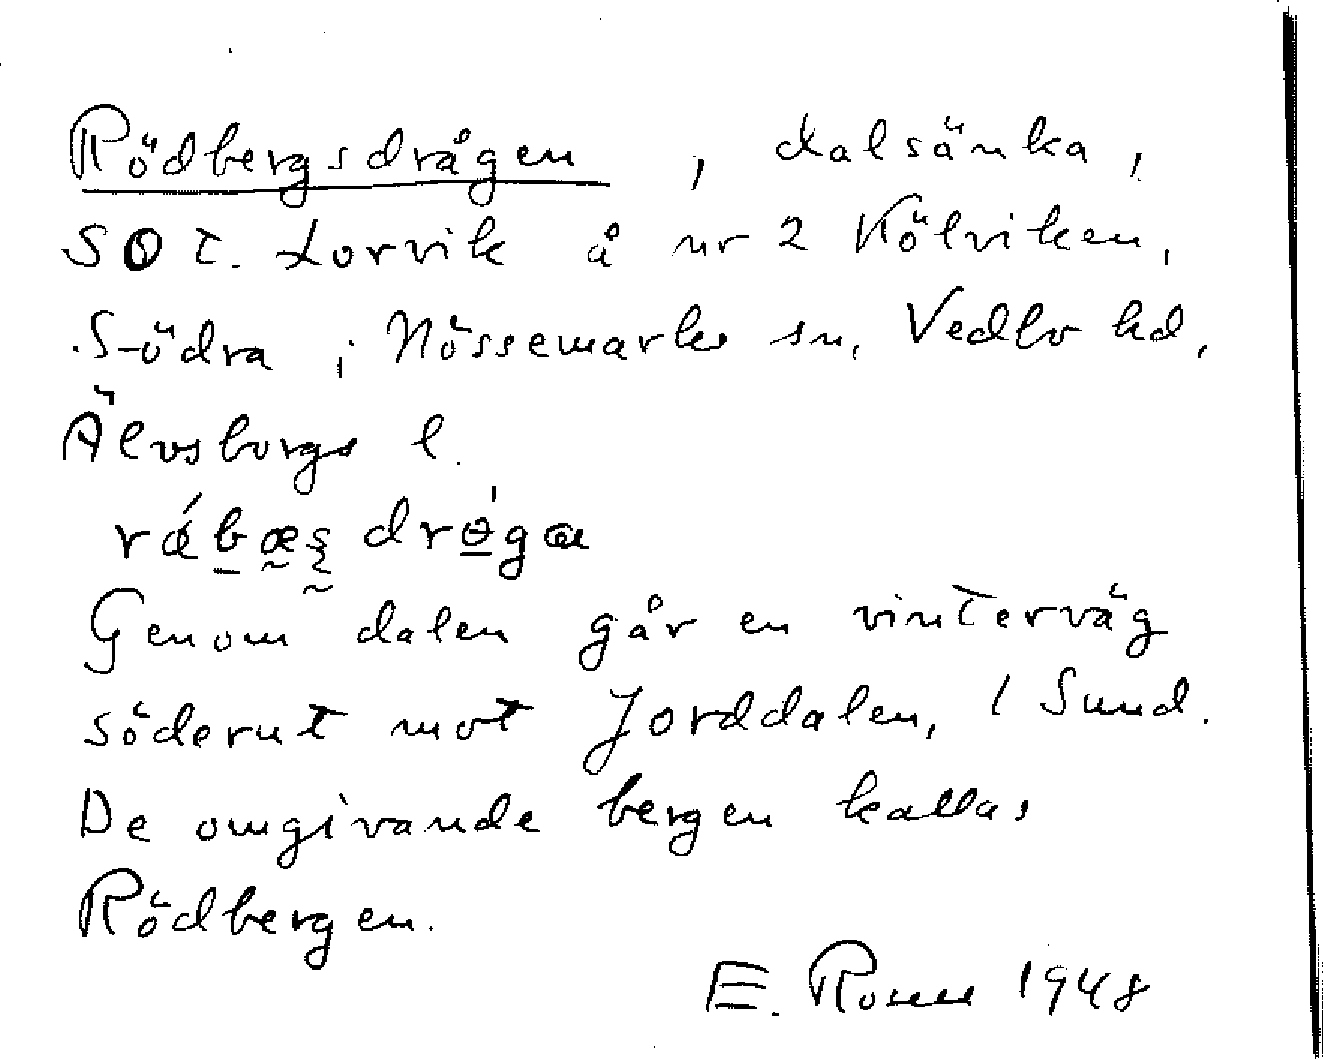 Rödbergsdrågen, dalsänka,
SO t. Torvik å nr 2 Kölviken,
Södra i Nössemarks sn, Vedbo hd,
Älvsborgs l.
Genom dalen går en vinterväg
söderut mot Jorddalen, 1 Sund.
De omgivande bergen kallas
Rödbergen.
E. Rouu 1948